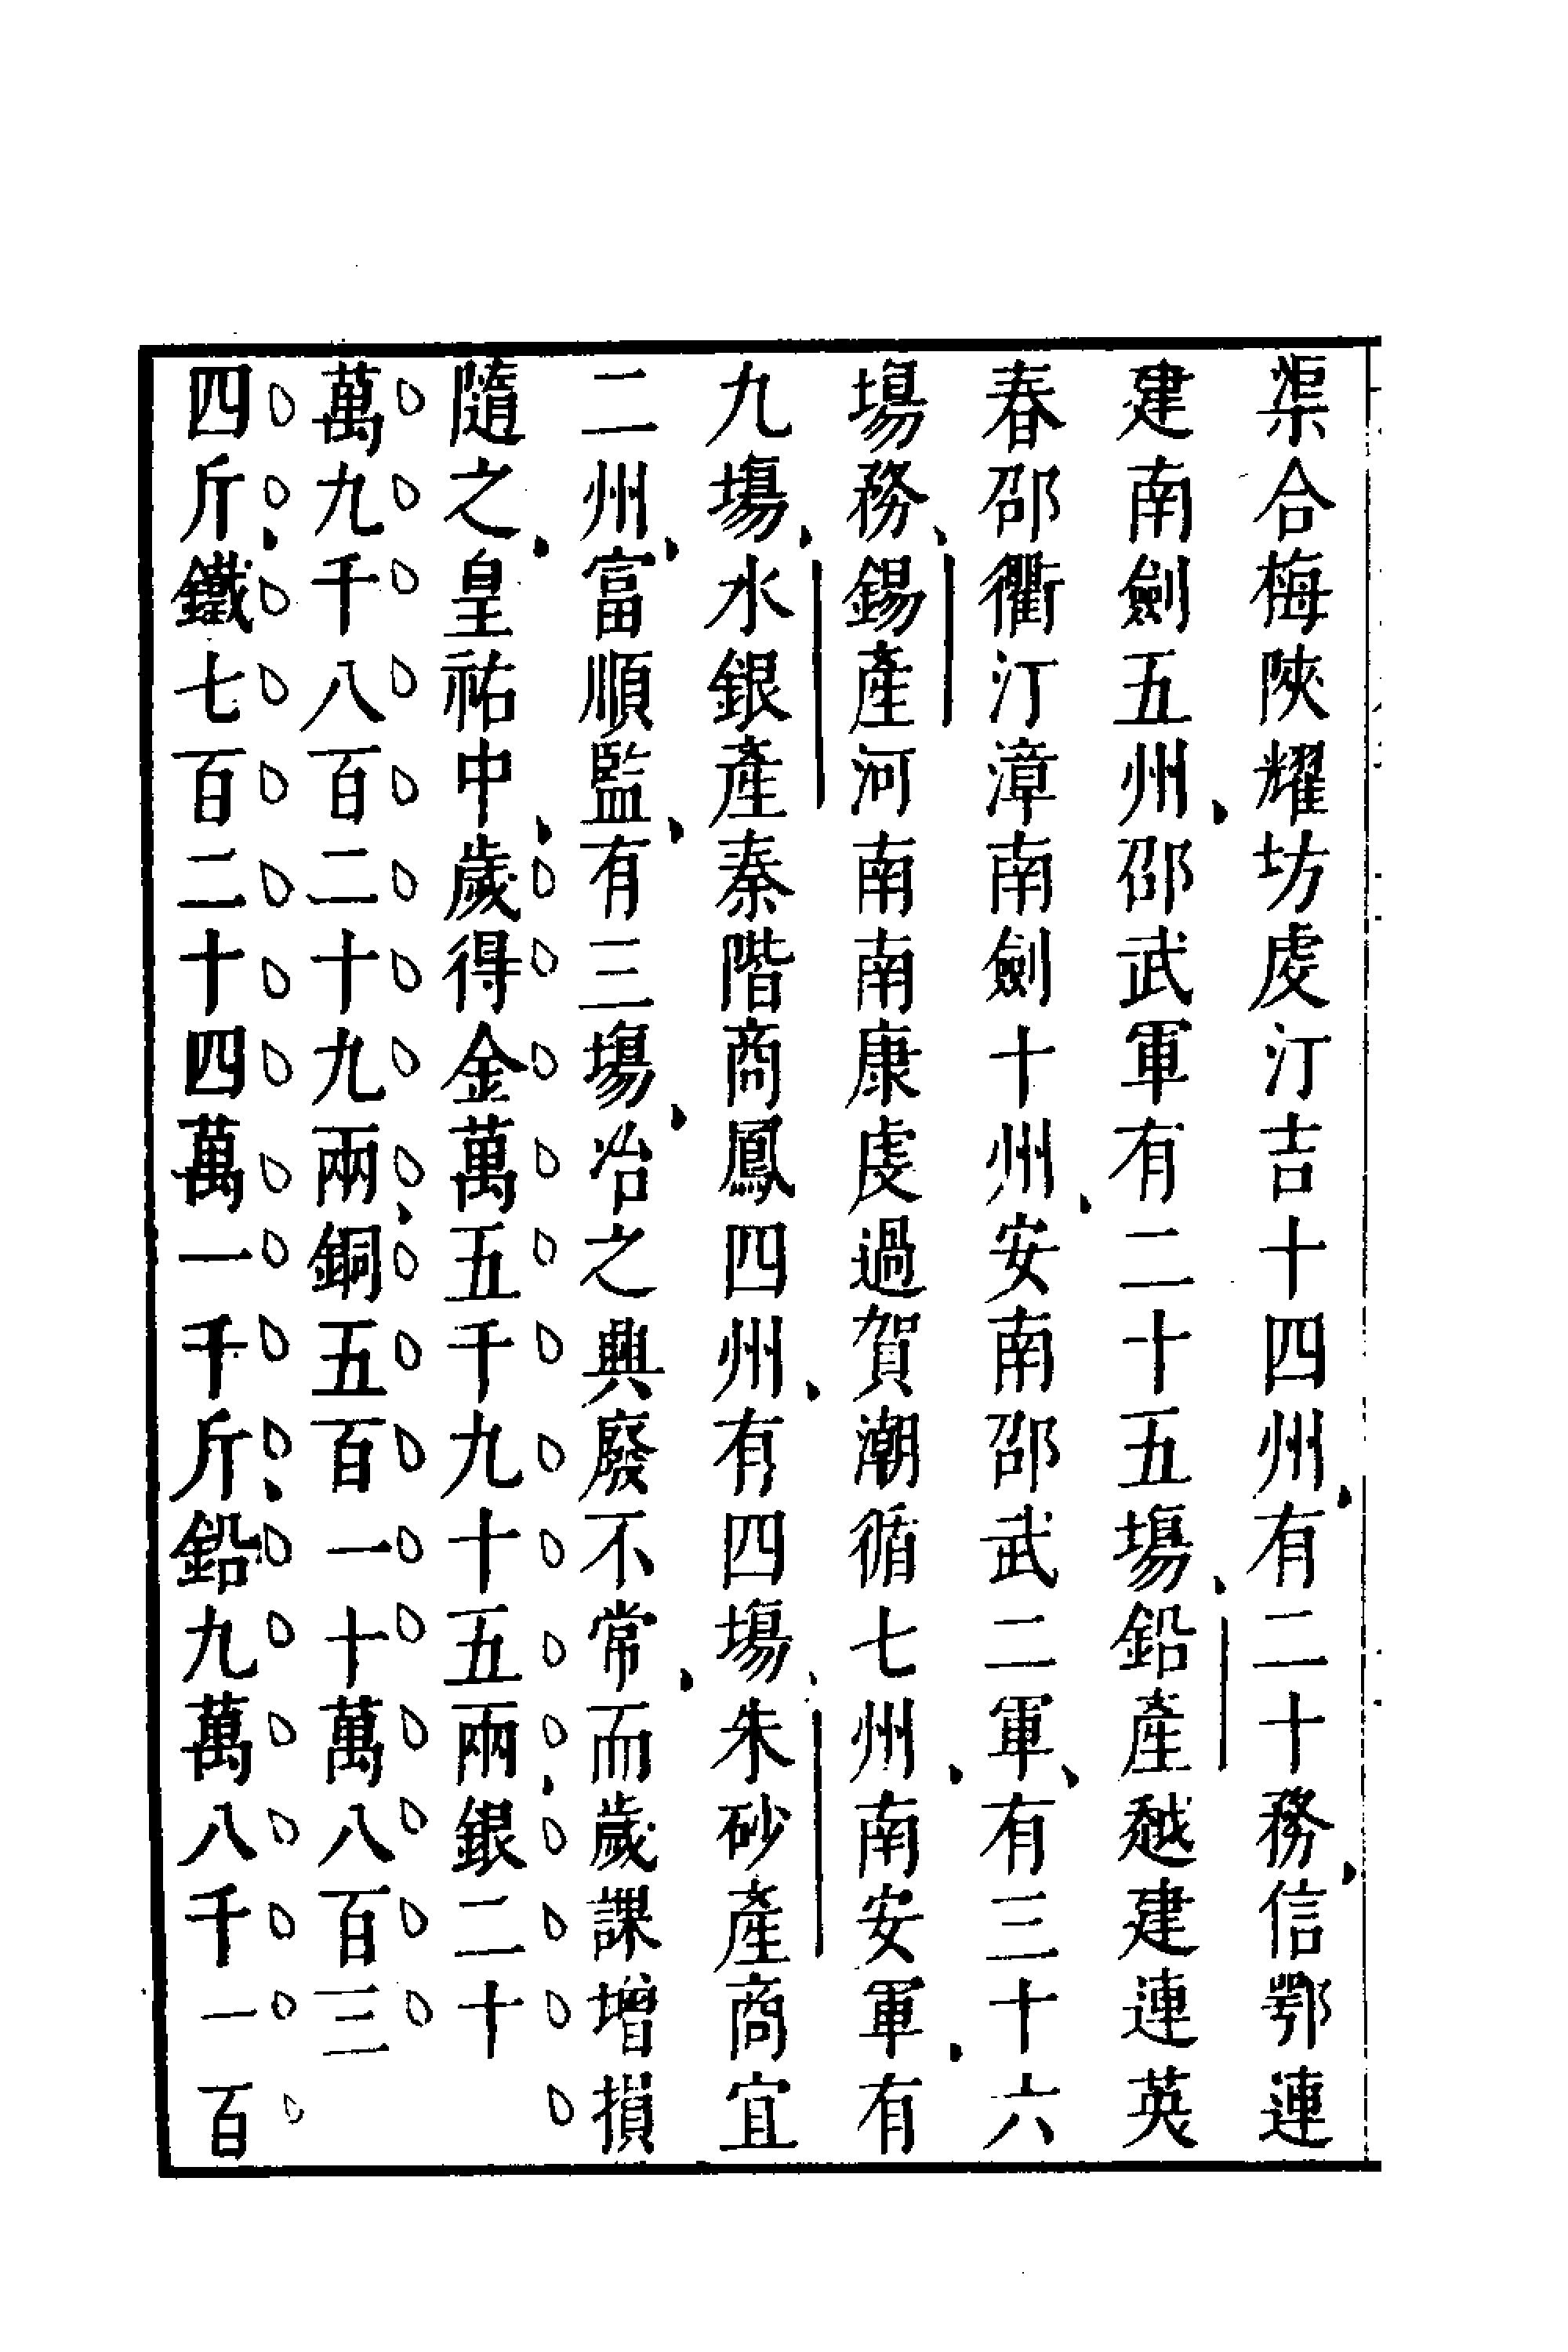 渠合梅陜耀坊虔汀吉十四州有二十務信鄂連
建南劍五州邵武軍有二十五場鉛產越建連英
春邵衢汀漳南劍十州安南邵武二軍有三十六
場務錫產河南南康虔過賀潮循七州南安軍有
九場水銀產秦階商鳳四州有四場朱砂產商宜
二州富順監有三場冶之興廢不常而歲課增損
隨之皇祐中歲得金萬五千九十五兩銀二十
萬九千八百二十九兩銅五百一十萬八百三
四斤鐵七百二十四萬一千斤鉛九萬八千一百